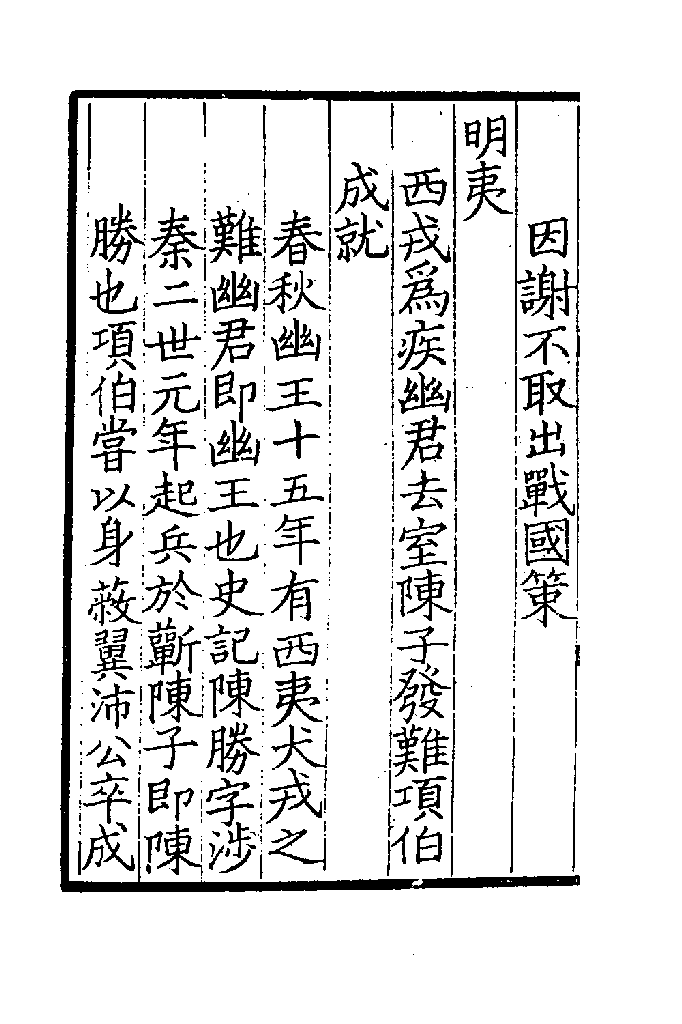 因謝不取出戰國策
明夷
西戎爲疾幽君去室陳子發難項伯
成就
春秋幽王十五年有西夷犬戎之
難幽君即幽王也史記陳勝字渉
秦二世元年起兵於蘄陳子即陳
勝也項伯嘗以身蔽翼沛公卒成